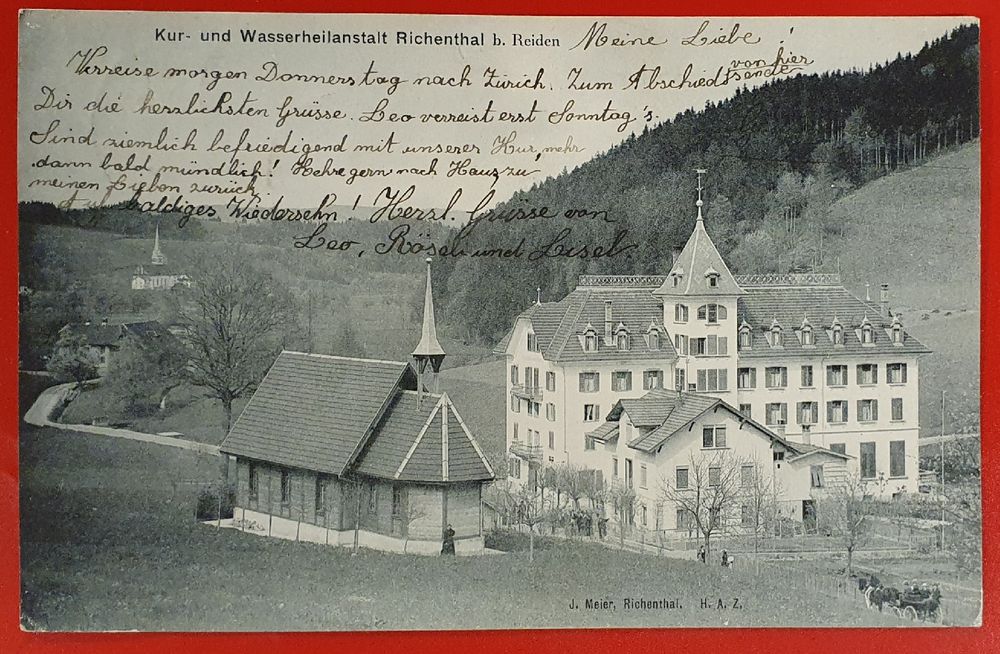 Kur- und Wasserheilanstalt Richenthal b. Reiden
Meine Liebe!
Verreise morgen Donnerstag nach Zürich. Zum Abschied sende
von hier
Dir die herrlichsten Grüsse. Leo verreist erst Sonntag's.
Sind niemlich befriedigend mit unserer Kur, mehr
dann bald mündlich! Kehre gern nach Hauz zu
meinen Lieben zurück
Auf baldiges Wiedersehn! Herzl. Grüsse von
Leo, Rösel und Lisel.
J. Meier, Richenthal. H. A. Z.